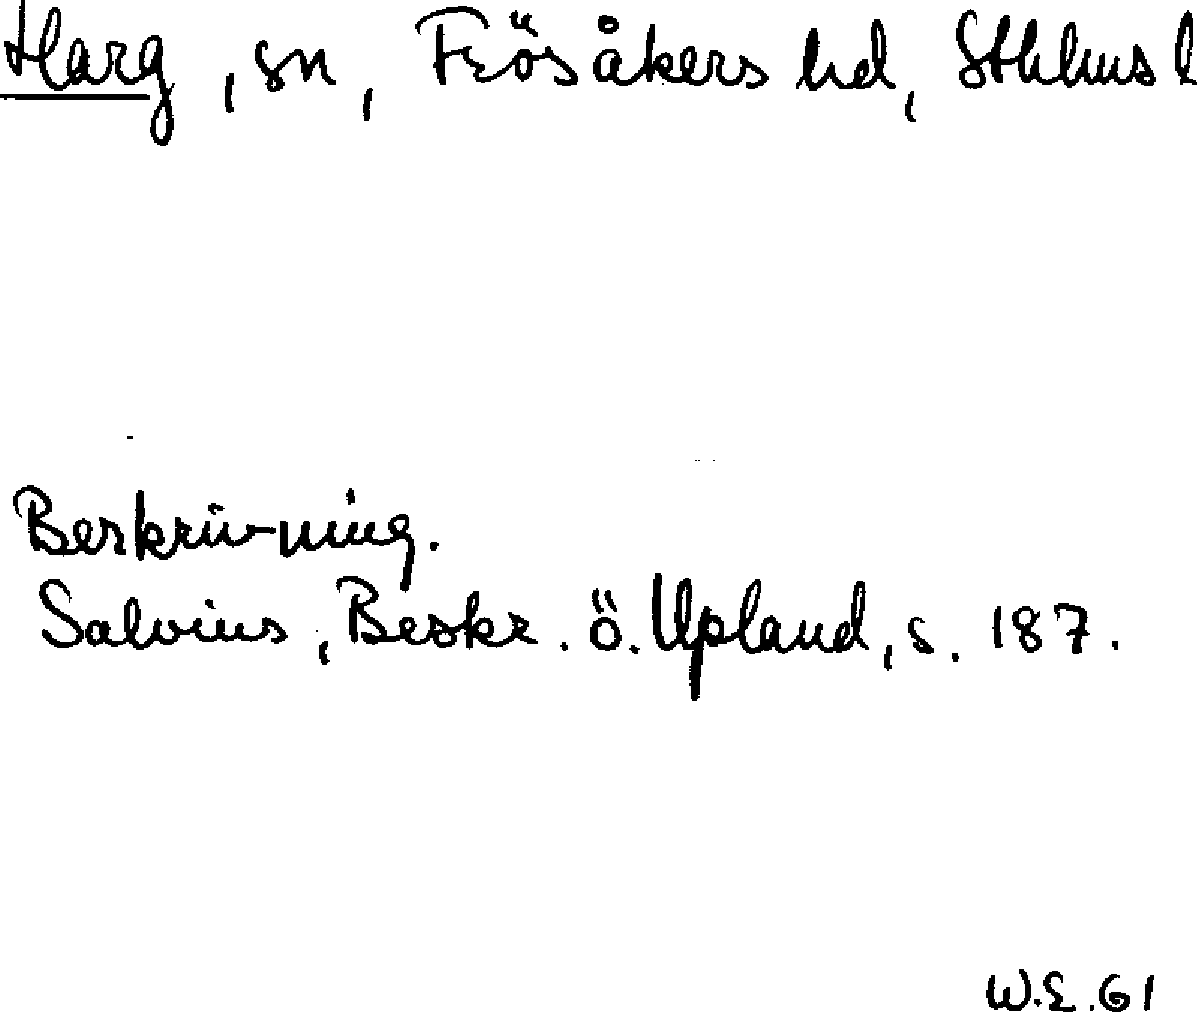 Harg, sn, Frösåkers hd, Sthlms l
Beskrivning.
Salvius, Beskr. ö. Upland, s. 187.
W.E. 61